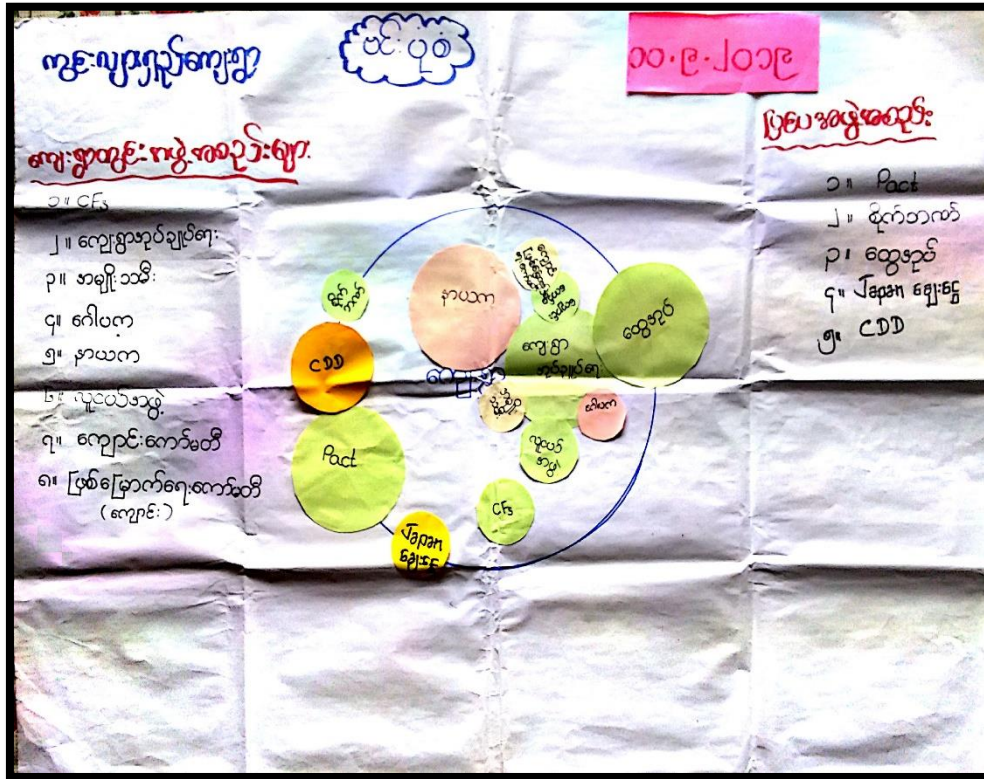 ကွင်းလျားရှည်ကျေးရွာ
ဗင်းပုံစံ
၁၀.၉.၂၀၁၉
ကျေးရွာတွင်းအဖွဲ့အစည်းများ
၁။ CFs
၂။ ကျေးရွာအုပ်ချုပ်ရေး
၃။ အမျိုးသမီး
၄။ ဂေါပက
၅။ နာယက
၆။ လူငယ်အဖွဲ့
၇။ ကျောင်းကော်မတီ
၈။ ဖြစ်မြောက်ရေးကော်မတီ
(ကျောင်း)
ပြင်ပအဖွဲ့အစည်း
၁။ Pact
၂။ စိုက်ဘဏ်
၃။ ထွေအုပ်
၄။ Japan ချေးငွေ
၅။ CDD
စိုက်
ဘဏ်
နာယက
ထွေအုပ်
CDD
ကျေးရွာ
အုပ်ချုပ်ရေး
ကျေးရွာ
ဂေါပက
လူငယ်
အဖွဲ့
Pact
CFs
Japan
ချေးငွေ